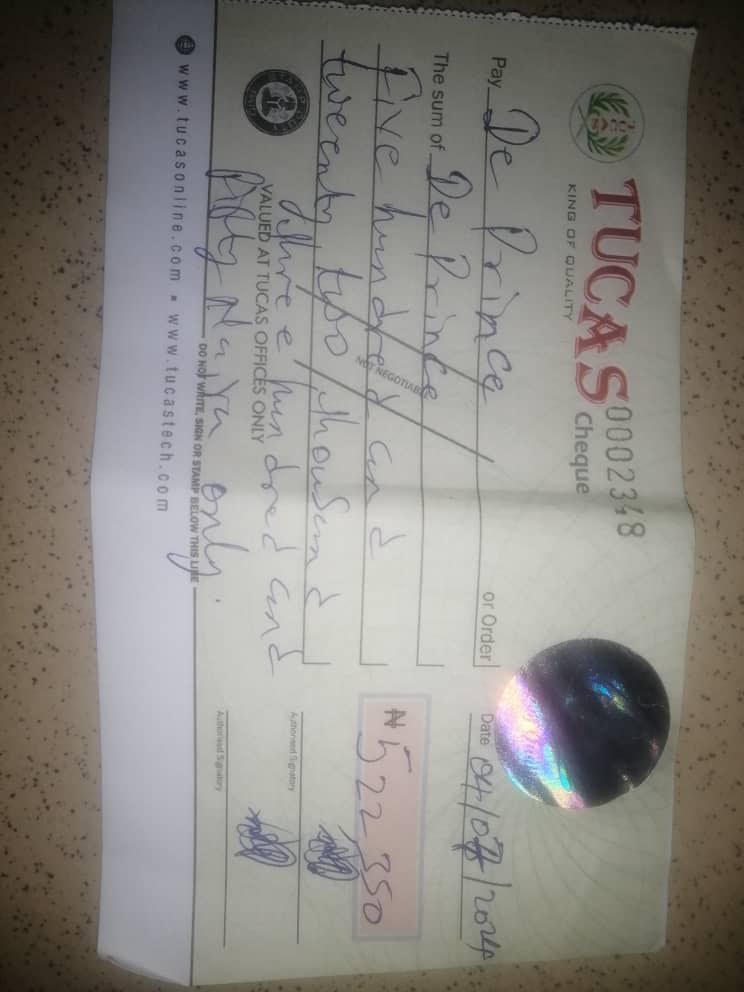 TUCAS
KING OF QUALITY
0002348
Cheque
Pay De Prince or Order
Date 04/07/2024
The sum of De Prince
NOT NEGOTIABLE
Five hundred and
tweenty two thousand
₦ 522,350
three hundred and
VALUED AT TUCAS OFFICES ONLY
Authorised Signatory
Fifty Naira only.
Authorised Signatory
DO NOT WRITE, SIGN OR STAMP BELOW THIS LINE
www.tucasonline.com ▪ www.tucastech.com